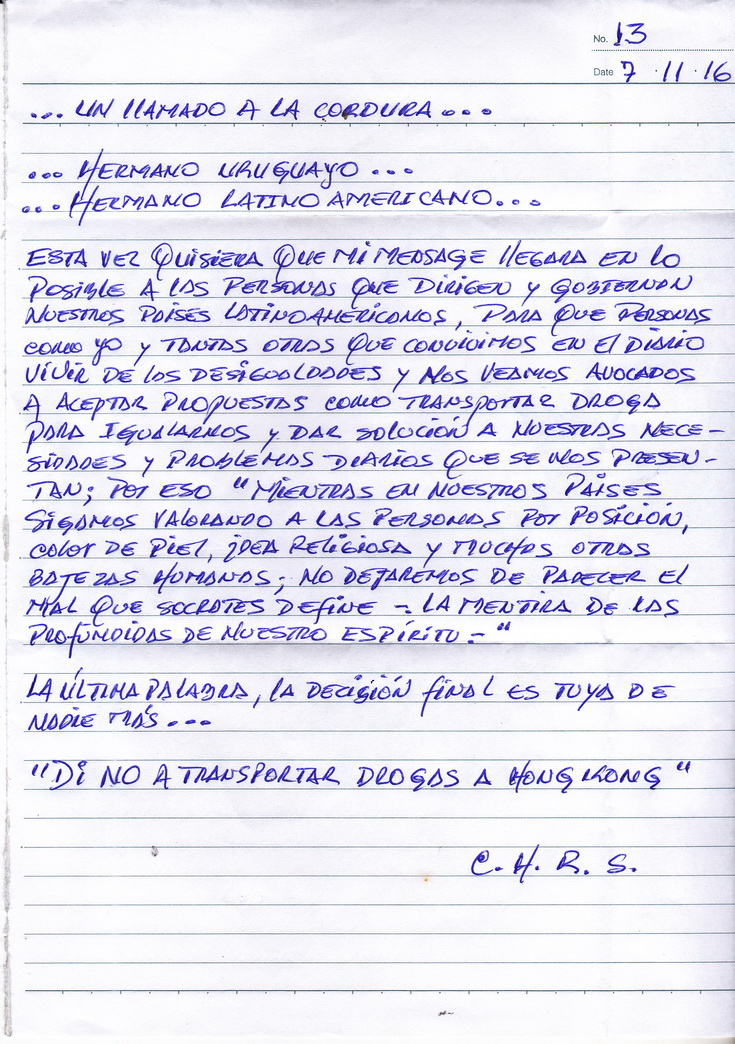 No. 13
Date 7 · 11 · 16
... UN LLAMADO A LA CORDURA ...
... HERMANO URUGUAYO ...
... HERMANO LATINOAMERICANO...
ESTA VEZ QUISIERA QUE MI MENSAGE LLEGARA EN LO
POSIBLE A LAS PERSONAS QUE DIRIGEN Y GOBIERNAN
NUESTROS PAISES LATINOAMERICANOS, PARA QUE PERSONAS
COMO YO Y TANTAS OTRAS QUE CONVIVIMOS EN EL DIARIO
VIVIR DE LAS DESIGUALDADES Y NOS VEAMOS AVOCADOS
A ACEPTAR PROPUESTAS COMO TRANSPORTAR DROGA
PARA IGUALARNOS Y DAR SOLUCIÓN A NUESTRAS NECE-
SIDADES Y PROBLEMAS DIARIOS QUE SE NOS PRESEN-
TAN; POR ESO "MIENTRAS EN NUESTROS PAÍSES
SIGAMOS VALORANDO A LAS PERSONAS POR POSICIÓN,
COLOR DE PIEL, IDEA RELIGIOSA Y MUCHAS OTRAS
BAJEZAS HUMANAS; NO DEJAREMOS DE PADECER EL
MAL QUE SOCRATES DEFINE - LA MENTIRA DE LAS
PROFUNDIDAS DE NUESTRO ESPÍRITU - "
LA ÚLTIMA PALABRA, LA DECISIÓN FINAL ES TUYA DE
NADIE MÁS ...
"DI NO A TRANSPORTAR DROGAS A HONG KONG"
C. H. R. S.